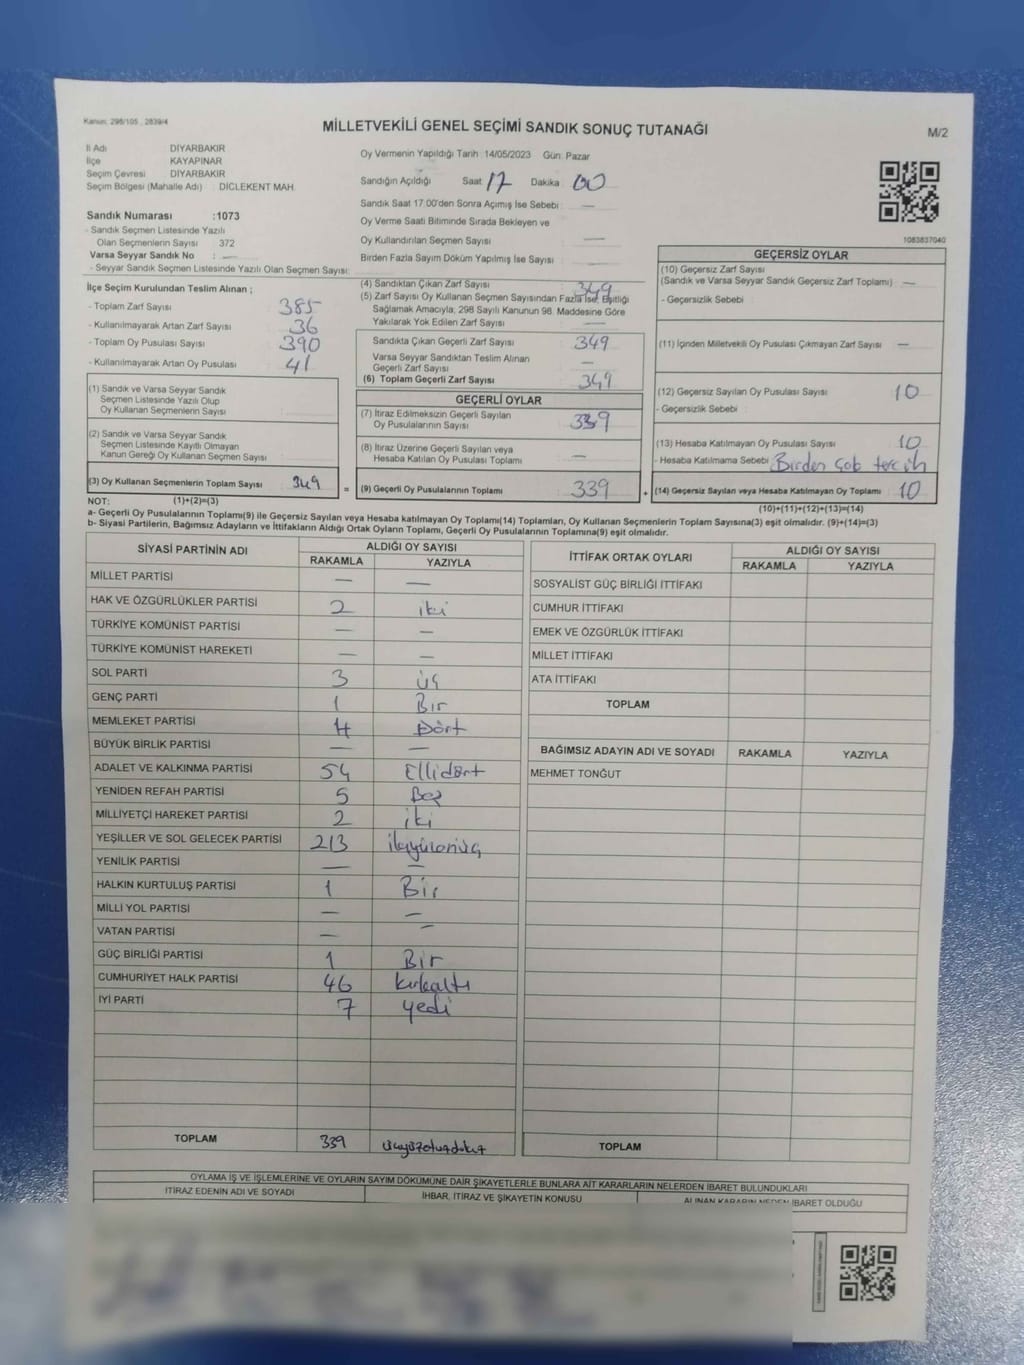 Kanun; 298/105 , 2839/4
MİLLETVEKİLİ GENEL SEÇİMİ SANDIK SONUÇ TUTANAĞI
M/2
İl Adı DİYARBAKIR
İlçe KAYAPINAR
Seçim Çevresi DİYARBAKIR
Seçim Bölgesi (Mahalle Adı) : DİCLEKENT MAH.
Sandık Numarası :1073
- Sandık Seçmen Listesinde Yazılı
Olan Seçmenlerin Sayısı 372
Varsa Seyyar Sandık No : —
- Seyyar Sandık Seçmen Listesinde Yazılı Olan Seçmen Sayısı:
Oy Vermenin Yapıldığı Tarih :14/05/2023 Gün: Pazar
Sandığın Açıldığı Saat 17 Dakika 00
Sandık Saat 17.00'den Sonra Açımış İse Sebebi : —
Oy Verme Saati Bitiminde Sırada Bekleyen ve
Oy Kullandırılan Seçmen Sayısı : —
Birden Fazla Sayım Döküm Yapılmış İse Sayısı : —
1083837040
İlçe Seçim Kurulundan Teslim Alınan ;
- Toplam Zarf Sayısı 385
- Kullanılmayarak Artan Zarf Sayısı 36
- Toplam Oy Pusulası Sayısı 390
- Kullanılmayarak Artan Oy Pusulası 41
(1) Sandık ve Varsa Seyyar Sandık
Seçmen Listesinde Yazılı Olup
Oy Kullanan Seçmenlerin Sayısı :
(2) Sandık ve Varsa Seyyar Sandık
Seçmen Listesinde Kayıtlı Olmayan
Kanun Gereği Oy Kullanan Seçmen Sayısı :
(3) Oy Kullanan Seçmenlerin Toplam Sayısı 349 =
(4) Sandıktan Çıkan Zarf Sayısı 349
(5) Zarf Sayısı Oy Kullanan Seçmen Sayısından Fazla İse, Eşitliği
Sağlamak Amacıyla, 298 Sayılı Kanunun 98. Maddesine Göre
Yakılarak Yok Edilen Zarf Sayısı : —
Sandıkta Çıkan Geçerli Zarf Sayısı 349
Varsa Seyyar Sandıktan Teslim Alınan
Geçerli Zarf Sayısı : —
(6) Toplam Geçerli Zarf Sayısı 349
GEÇERLİ OYLAR
(7) İtiraz Edilmeksizin Geçerli Sayılan
Oy Pusulalarının Sayısı : 339
(8) İtiraz Üzerine Geçerli Sayılan veya
Hesaba Katılan Oy Pusulası Toplamı —
(9) Geçerli Oy Pusulalarının Toplamı 339 +
GEÇERSİZ OYLAR
(10) Geçersiz Zarf Sayısı
(Sandık ve Varsa Seyyar Sandık Geçersiz Zarf Toplamı) : —
- Geçersizlik Sebebi :
(11) İçinden Milletvekili Oy Pusulası Çıkmayan Zarf Sayısı —
(12) Geçersiz Sayılan Oy Pusulası Sayısı 10
- Geçersizlik Sebebi :
(13) Hesaba Katılmayan Oy Pusulası Sayısı 10
- Hesaba Katılmama Sebebi Birden çob tercih
(14) Geçersiz Sayılan veya Hesaba Katılmayan Oy Toplamı 10
NOT: (1)+(2)=(3)
(10)+(11)+(12)+(13)=(14)
a- Geçerli Oy Pusulalarının Toplamı(9) ile Geçersiz Sayılan veya Hesaba katılmayan Oy Toplamı(14) Toplamları, Oy Kullanan Seçmenlerin Toplam Sayısına(3) eşit olmalıdır. (9)+(14)=(3)
b- Siyasi Partilerin, Bağımsız Adayların ve İttifakların Aldığı Ortak Oyların Toplamı, Geçerli Oy Pusulalarının Toplamına(9) eşit olmalıdır.
SİYASİ PARTİNİN ADI ALDIĞI OY SAYISI
RAKAMLA YAZIYLA
MİLLET PARTİSİ — —
HAK VE ÖZGÜRLÜKLER PARTİSİ 2 iki
TÜRKİYE KOMÜNİST PARTİSİ — —
TÜRKİYE KOMÜNİST HAREKETİ — —
SOL PARTİ 3 üç
GENÇ PARTİ 1 Bir
MEMLEKET PARTİSİ 4 Dört
BÜYÜK BİRLİK PARTİSİ — —
ADALET VE KALKINMA PARTİSİ 54 Ellidört
YENİDEN REFAH PARTİSİ 5 Beş
MİLLİYETÇİ HAREKET PARTİSİ 2 iki
YEŞİLLER VE SOL GELECEK PARTİSİ 213
YENİLİK PARTİSİ — —
HALKIN KURTULUŞ PARTİSİ 1 Bir
MİLLİ YOL PARTİSİ — —
VATAN PARTİSİ — —
GÜÇ BİRLİĞİ PARTİSİ 1 Bir
CUMHURİYET HALK PARTİSİ 46 kırkaltı
İYİ PARTİ 7 yedi
TOPLAM 339
İTTİFAK ORTAK OYLARI ALDIĞI OY SAYISI
RAKAMLA YAZIYLA
SOSYALİST GÜÇ BİRLİĞİ İTTİFAKI
CUMHUR İTTİFAKI
EMEK VE ÖZGÜRLÜK İTTİFAKI
MİLLET İTTİFAKI
ATA İTTİFAKI
TOPLAM
BAĞIMSIZ ADAYIN ADI VE SOYADI RAKAMLA YAZIYLA
MEHMET TONĞUT
TOPLAM
OYLAMA İŞ VE İŞLEMLERİNE VE OYLARIN SAYIM DÖKÜMÜNE DAİR ŞİKAYETLERLE BUNLARA AİT KARARLARIN NELERDEN İBARET BULUNDUKLARI
İTİRAZ EDENİN ADI VE SOYADI İHBAR, İTİRAZ VE ŞİKAYETİN KONUSU ALINAN KARARIN NEDEN İBARET OLDUĞU